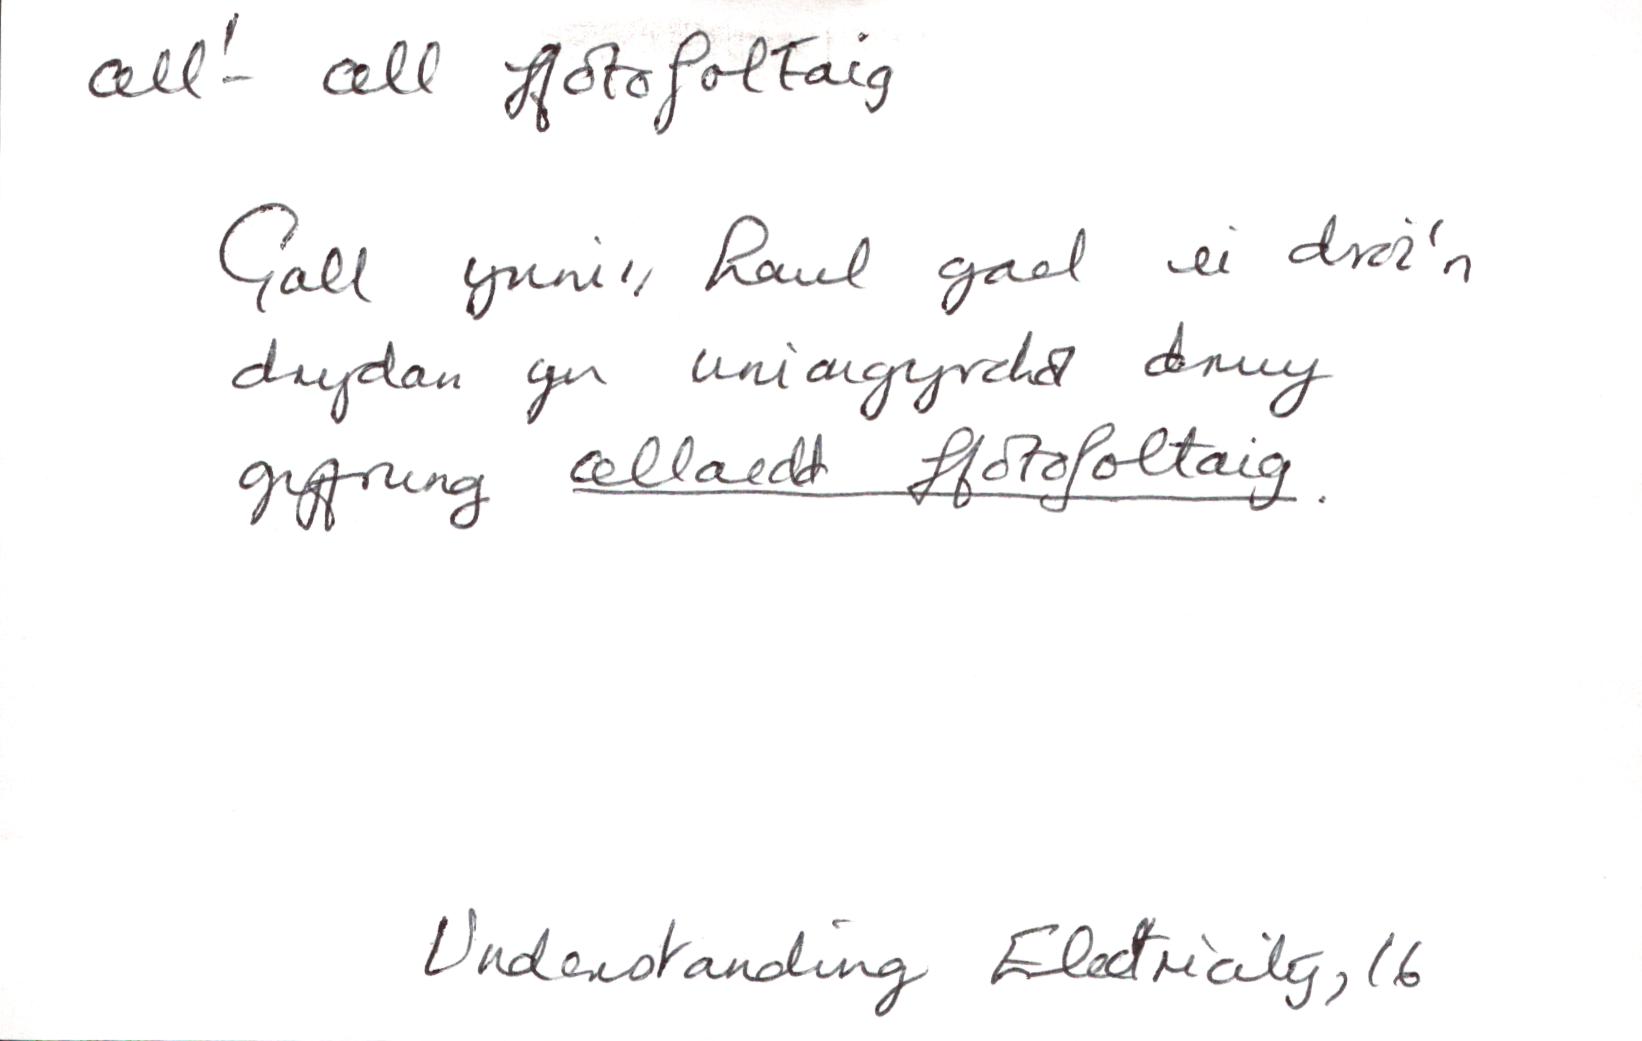 cell¹- cell ffotofoltaig
Gall ynni'r haul gael ei droi'n
drydan yn uniongyrchol drwy
gyfrwng celloedd ffotofoltaig.
Understanding Electricity, 16